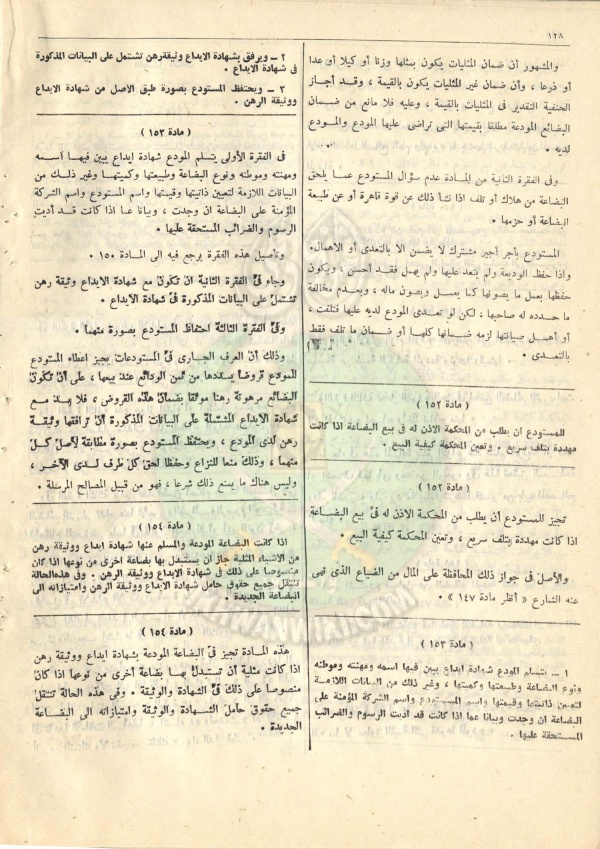 ١٢٨
والمشهور أن ضمان المثليات يكون بمثلها وزنا أو كيلا أو عدا
أو ذرعا ، وأن ضمان غير المثليات يكون بالقيمة ، وقد أجاز
الحنفية التقدير فى المثليات بالقيمة ، وعليه فلا مانع من ضمان
البضائع المودعة مطلقا بقيمتها التى تراضى عليها المودع والمودع
لديه .
وفى الفقرة الثانية من المادة عدم سؤال المستودع عما يلحق
البضاعة من هلاك أو تلف اذا نشأ ذلك عن قوة قاهرة أو عن طبيعة
البضاعة أو حزمها .
المستودع بأجر أجير مشترك لا يضمن الا بالتعدى أو الاهمال.
واذا حفظ الوديعة ولم يتعد عليها ولم يهمل فقد أحسن ، ويكون
حفظها بعمل ما يصونها كما يعمل ويصون ماله ، وبعدم مخالفة
ما حدده له صاحبها ، لكن لو تعدى المودع لديه عليها فتلفت ،
أو أهمل صيانتها لزمه ضمانها كلها أو ضمان ما تلف فقط
بالتعدى .
( مادة ١٥٢ )
للمستودع أن يطلب من المحكمة الاذن له فى بيع البضاعة اذا كانت
مهددة بتلف سريع . وتعين المحكمة كيفية البيع .
( مادة ١٥٢ )
تجيز للمستودع أن يطلب من المحكمة الاذن له فى بيع البضاعة
اذا كانت مهددة بتلف سريع ، وتعين المحكمة كيفية البيع .
والأصل فى جواز ذلك المحافظة على المال من الضياع الذى نهى
عنه الشارع « أنظر مادة ١٤٧ » .
( مادة ١٥٣ )
١ – يتسلم المودع شهادة ايداع يبين فيها اسمه ومهنته وموطنه
ونوع البضاعة وطبيعتها وكميتها ، وغير ذلك من البيانات اللازمة
لتعيين ذاتيتها وقيمتها واسم المستودع واسم الشركة المؤمنة على
البضاعة ان وجدت وبيانا عما اذا كانت قد أديت الرسوم والضرائب
المستحقة عليها .
٢ – ويرفق بشهادة الايداع وثيقة رهن تشتمل على البيانات المذكورة
فى شهادة الايداع .
٣ – ويحتفظ المستودع بصورة طبق الأصل من شهادة الايداع
ووثيقة الرهن .
( مادة ١٥٣ )
فى الفقرة الأولى يتسلم المودع شهادة ايداع يبين فيها اسمه
ومهنته وموطنه ونوع البضاعة وطبيعتها وكميتها وغير ذلك من
البيانات اللازمة لتعيين ذاتيتها وقيمتها واسم المستودع واسم الشركة
المؤمنة على البضاعة ان وجدت ، وبيانا عما اذا كانت قد أديت
الرسوم والضرائب المستحقة عليها .
وتأصيل هذه الفقرة يرجع فيه الى المادة ١٥٠ .
وجاء فى الفقرة الثانية أن تكون مع شهادة الايداع وثيقة رهن
تشتمل على البيانات المذكورة فى شهادة الايداع .
وفى الفقرة الثالثة احتفاظ المستودع بصورة منهما .
وذلك أن العرف الجارى فى المستودعات يجيز اعطاء المستودع
للمودع قروضا يسددها من ثمن الودائع عند بيعها ، على أن تكون
البضائع مرهونة رهنا موثقا بضمان هذه القروض ، فلا بد مع
شهادة الايداع المشتملة على البيانات المذكورة أن ترافقها وثيقة
رهن لدى المودع ، ويحتفظ المستودع بصورة مطابقة لأصل كل
منهما ، وذلك منعا للنزاع وحفظا لحق كل طرف لدى الآخر ،
وليس هناك ما يمنع ذلك شرعا ، فهو من قبيل المصالح المرسلة .
( مادة ١٥٤ )
اذا كانت البضاعة المودعة والمسلم عنها شهادة ايداع ووثيقة رهن
من الأشياء المثلية جاز أن يستبدل بها بضاعة اخرى من نوعها اذا كان
منصوصا على ذلك فى شهادة الايداع ووثيقة الرهن . وفى هذه الحالة
تنتقل جميع حقوق حامل شهادة الايداع ووثيقة الرهن وامتيازاته الى
البضاعة الجديدة .
( مادة ١٥٤ )
هذه المادة تجيز فى البضاعة المودعة بشهادة ايداع ووثيقة رهن
اذا كانت مثلية أن تستبدل بها بضاعة أخرى من نوعها اذا كان
منصوصا على ذلك فى الشهادة والوثيقة . وفى هذه الحالة تنتقل
جميع حقوق حامل الشهادة والوثيقة وامتيازاته الى البضاعة
الجديدة .